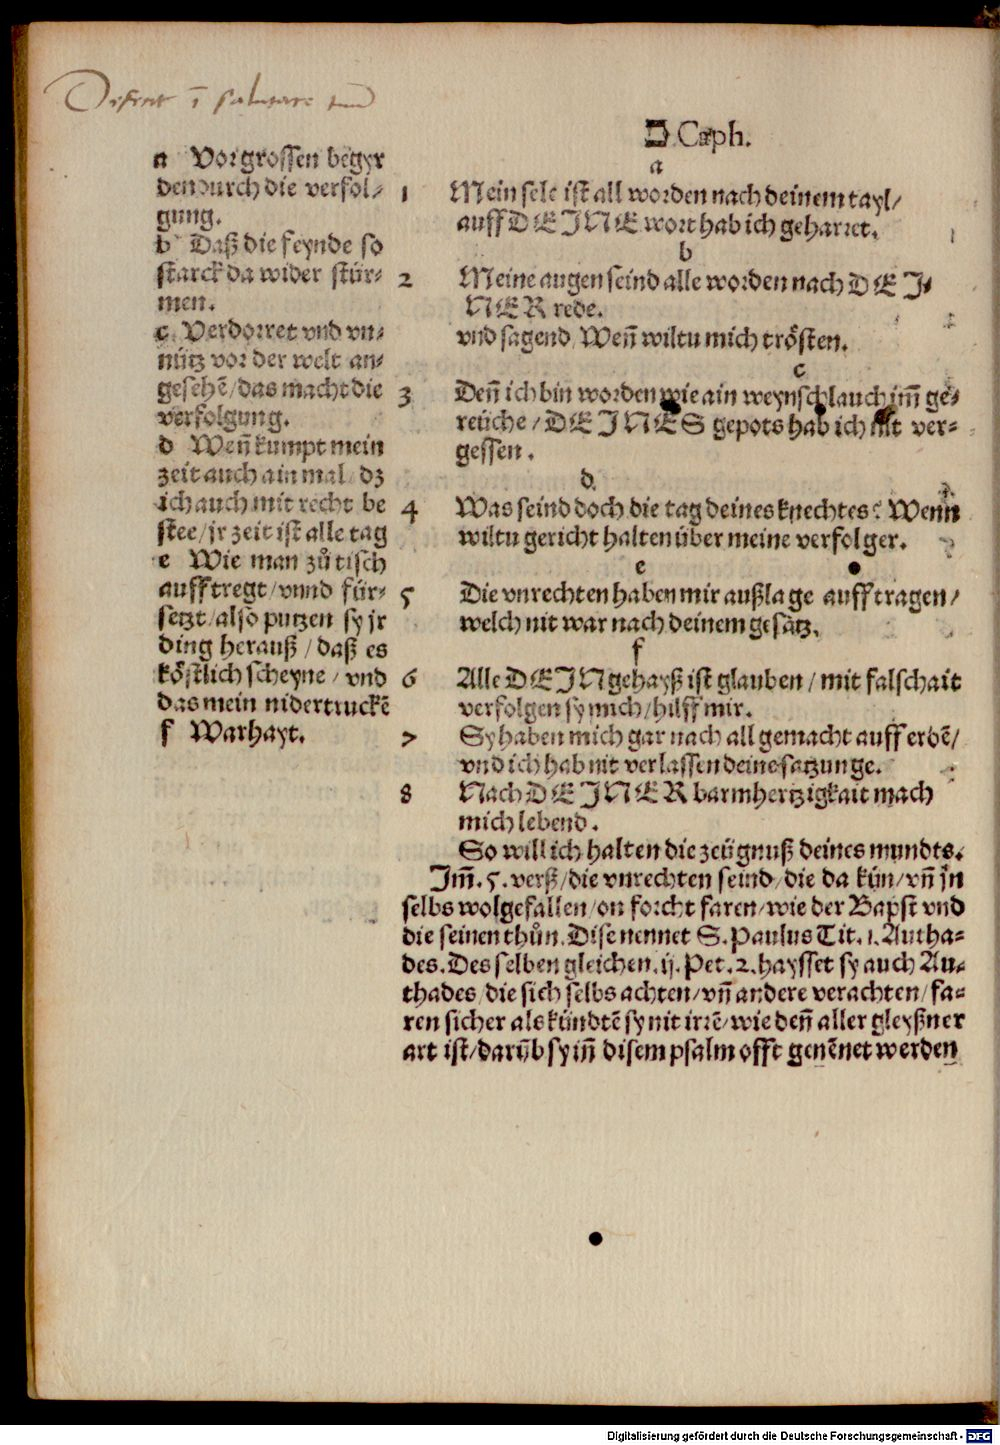 Defecit ī salutare tuū
כ Caph.
a Vor grossen begyr
den durch die verfol-
gung.
b Daß die feynde so
starck da wider stür-
men.
c Verdorret vnd vn-
nütz vor der welt an-
gesehē/das macht die
verfolgung.
d Weñ kumpt mein
zeit auch ain mal/dz
ich auch mit recht be
stee/jr zeit ist alle tag
e Wie man zů tisch
aufftregt/vnnd für-
setzt/also putzen sy jr
ding herauß/daß es
köstlich scheyne/vnd
das mein nidertruckē
f Warhayt.
a
1 Mein sele ist all worden nach deinem tayl/
auff DEINE wort hab ich geharret.
b
2 Meine augen seind alle worden nach DEI-
NER rede.
vnd sagend/Weñ wiltu mich trösten.
c
3 Deñ ich bin worden wie ain weynschlauch im̄ ge-
reüche/DEINES gepots hab ich nit ver-
gessen.
d.
4 Was seind doch die tag deines knechtes? Wenn
wiltu gericht halten über meine verfolger.
e
5 Die vnrechten haben mir außlage aufftragen/
welch nit war nach deinem gesätz.
f
6 Alle DEIN gehayß ist glauben/mit falschait
verfolgen sy mich/hilff mir.
7 Sy haben mich gar nach all gemacht auff erdē/
vnd ich hab nit verlassen deine satzunge.
8 Nach DEINER barmhertzigkait mach
mich lebend.
So will ich halten die zeügnuß deines mundts.
Im̄.5.verß/die vnrechten seind/die da kün/vñ jn
selbs wolgefallen/on forcht faren/wie der Bapst vnd
die seinen thůn. Dise nennet S. Paulus Tit.1. Autha-
des. Des selben gleichen.ij.Pet.2.haysset sy auch Au-
thades/die sich selbs achten/vñ andere verachten/fa-
ren sicher als kündtē sy nit irrē/wie deñ aller gleyßner
art ist/darüb sy iñ disem psalm offt genēnet werden
Digitalisierung gefördert durch die Deutsche Forschungsgemeinschaft - DFG